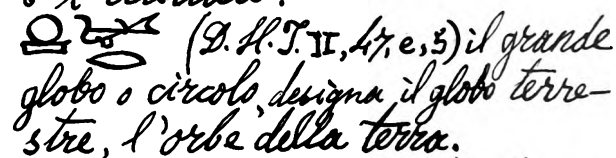 (D.H.T. II, 47, e, 5) il grande
globo o circolo, designa il globo terre-
stre, l'orbe della terra.